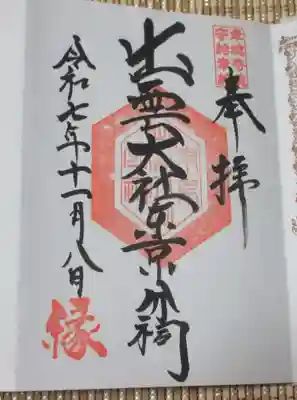 奉拝
出雲大社東京分祠
令和七年十一月八日
縁